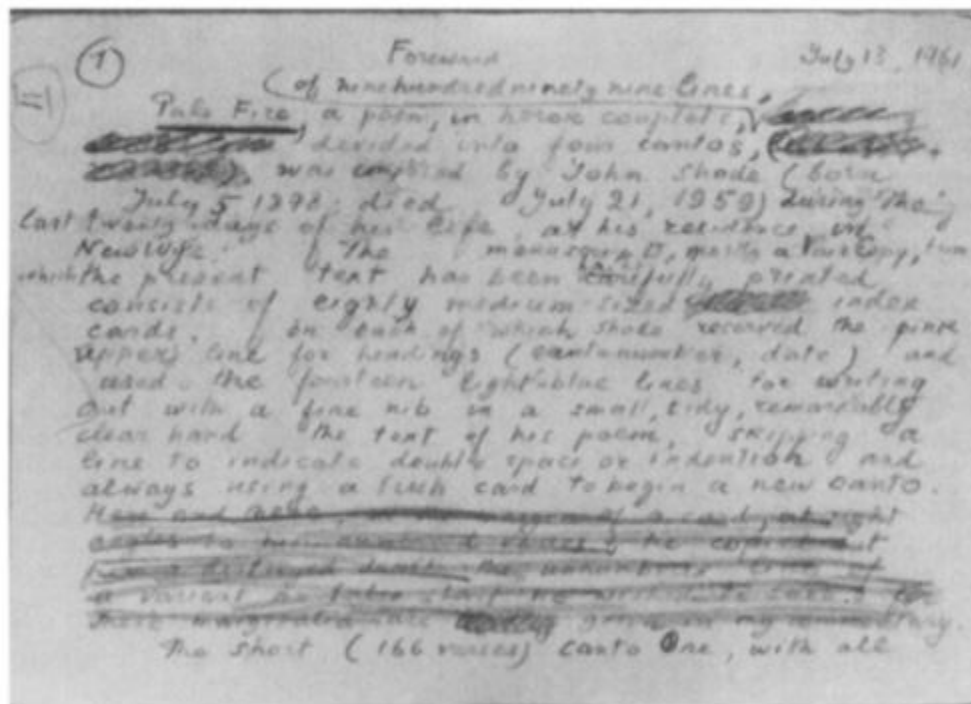 1
Foreword
July 13, 1961
II
(of nine hundred ninety nine lines,
Pale Fire, a poem, in heroic couplets,
divided into four cantos,
was composed by John Shade (born
July 5 1898, died July 21, 1959) during the
last twenty days of his life, at his residence in
New Wye. The manuscript, mostly a Fair Copy, from
which the present text has been faithfully printed
consists of eighty medium-sized index
cards, on each of which Shade reserved the pink
upper line for headings (canto number, date) and
used the fourteen light-blue lines for writing
out with a fine nib in a small, tidy, remarkably
clear hand the text of his poem, skipping a
line to indicate double space or indention and
always using a fresh card to begin a new canto.
Here and there, of a card, at right
angles to he copied out
the
a variant
these marginalia are given in my commentary.
The short (166 verses) canto One, with all